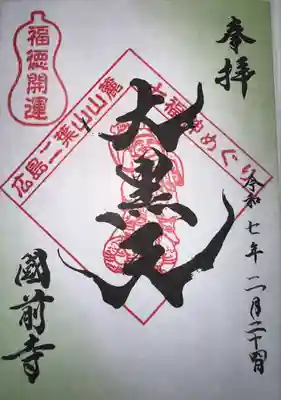 奉拝
令和七年二月二十四日
七福神めぐり
大黒天
広島二葉山山麓
福徳開運
國前寺